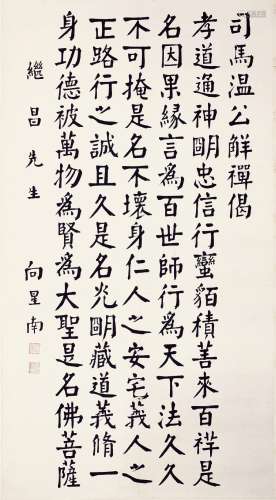 司馬温公解禪偈
孝道通神明忠信行蠻貊積善來百祥是
名因果緣言為百世師行為天下法久久
不可掩是名不壞身仁人之安宅義人之
正路行之誠且久是名光明藏道義脩一
身功德被萬物為賢為大聖是名佛菩薩
繼昌先生
向星南